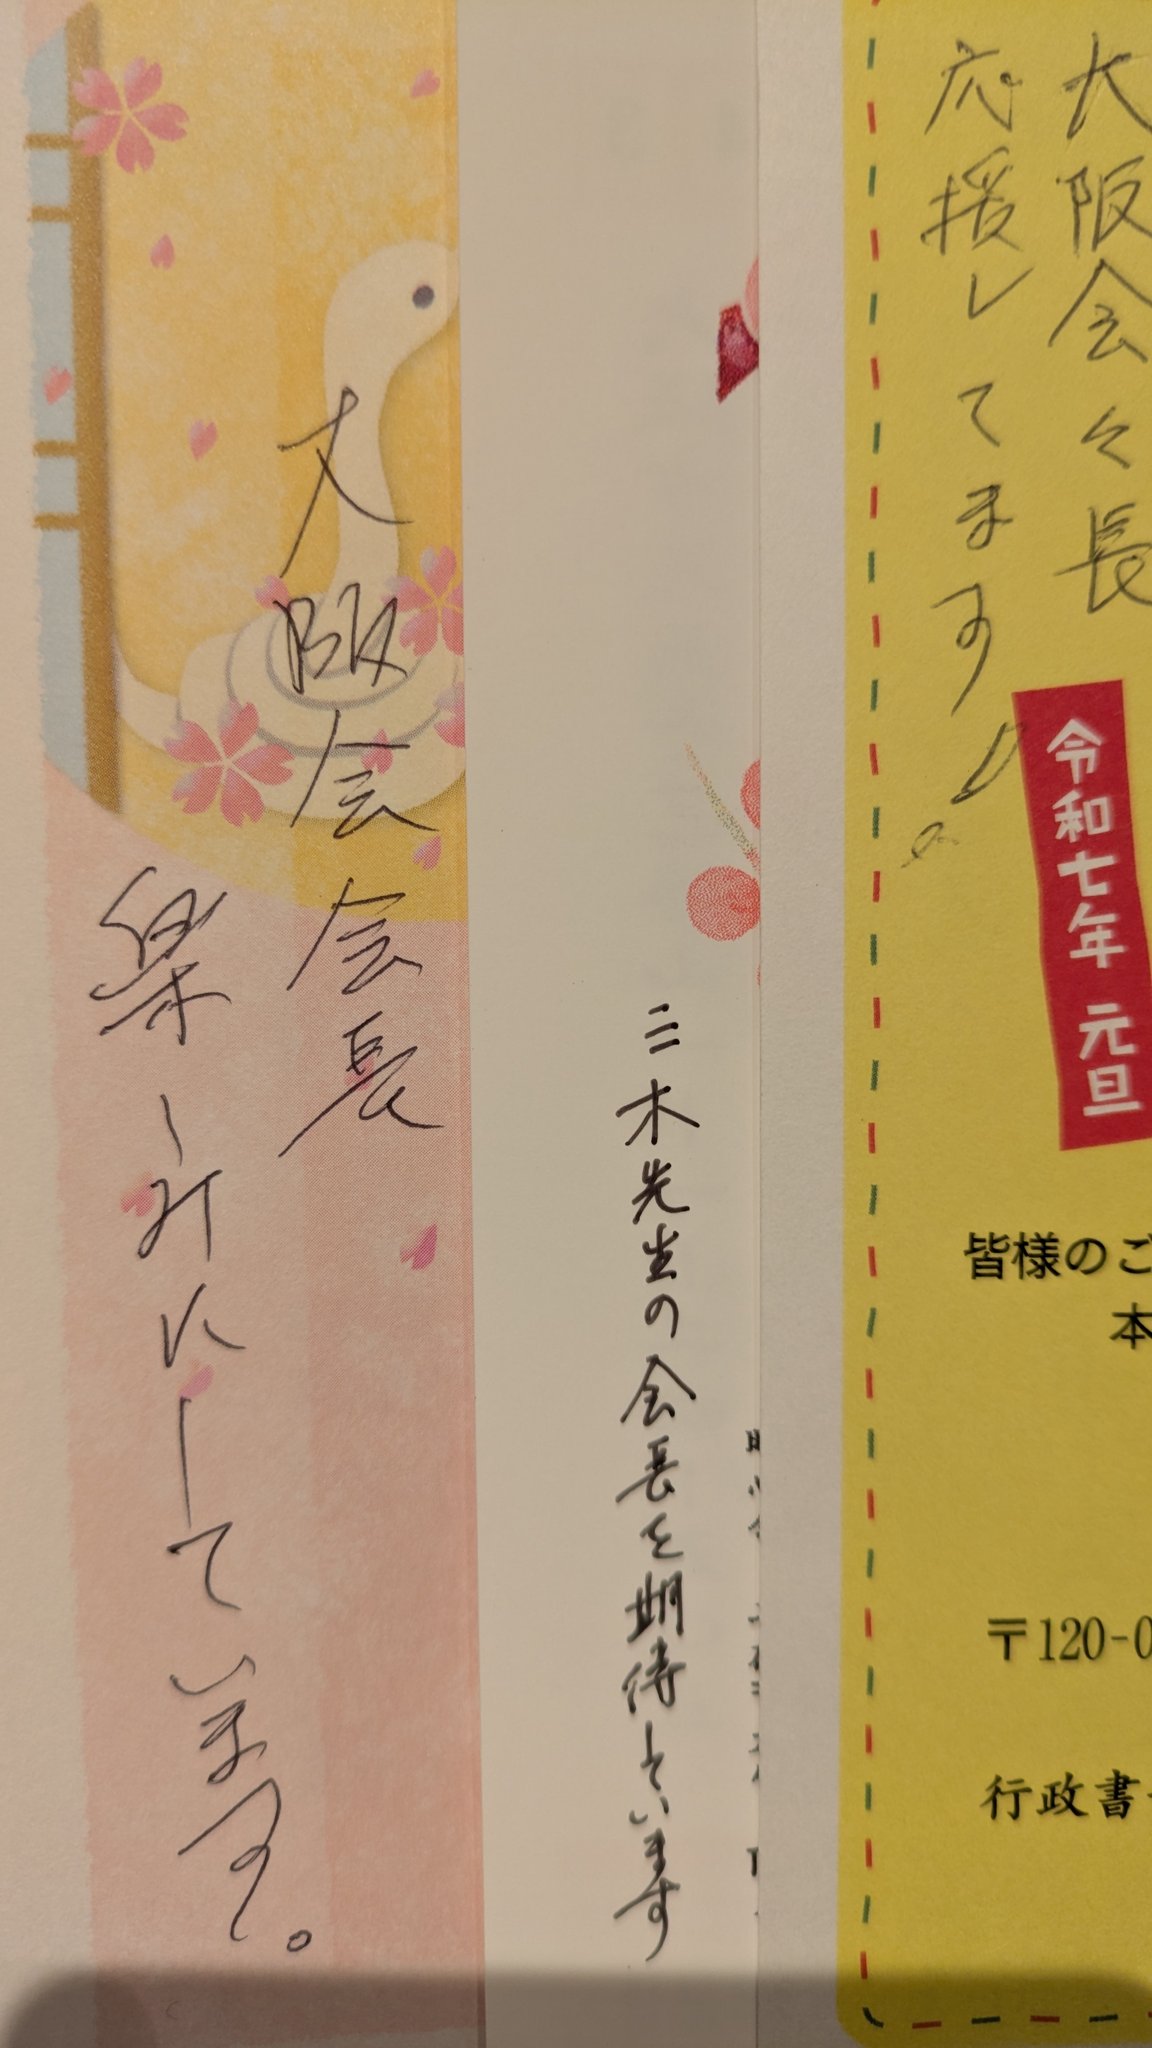 大阪会々長
応援してます!!
令和七年 元旦
皆様のご
本
〒120-0
行政書
三木先生の会長を期待しています
大阪会会長
楽しみにしています。